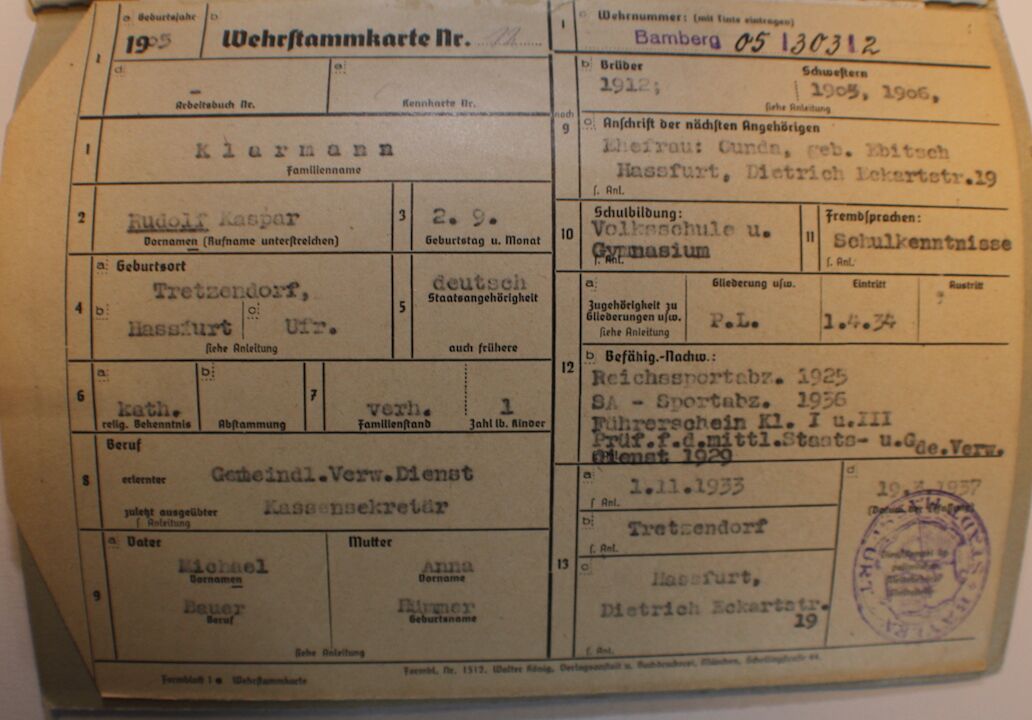 a Geburtsjahr
1905
b
Wehrstammkarte Nr.
d
Arbeitsbuch Nr.
e
Kennkarte Nr.
1
Klarmann
Familienname
2
Rudolf Kaspar
Vornamen (Rufname unterstreichen)
3
2. 9.
Geburtstag u. Monat
4
a Geburtsort
Tretzendorf,
b Hassfurt
c Ufr.
siehe Anleitung
5
deutsch
Staatsangehörigkeit
auch frühere
6
a
kath.
relig. Bekenntnis
b
Abstammung
7
verh.
Familienstand
1
Zahl lb. Kinder
8
Beruf
erlernter Gemeindl.Verw.Dienst
zuletzt ausgeübter Kassensekretär
s. Anleitung
9
a Vater
Michael
Vornamen
Bauer
Beruf
Mutter
Anna
Vorname
Geburtsname
siehe Anleitung
Formblatt 1 Wehrstammkarte
Formbl. Nr. 1512. Walter König, Verlagsanstalt u. Buchdruckerei, München, Schellingstraße 44.
1
c Wehrnummer: (mit Tinte eintragen)
Bamberg 05 | 303 | 2
noch 9
b Brüder
1912;
Schwestern
1903, 1906,
siehe Anleitung
c Anschrift der nächsten Angehörigen
Ehefrau: Gunda, geb. Ebitsch
Hassfurt, Dietrich Eckartstr.19
s. Anl.
10
Schulbildung:
Volksschule u.
Gymnasium
s. Anl.
11
Fremdsprachen:
Schulkenntnisse
s. Anl.
12
a
Zugehörigkeit zu
Gliederungen usw.
siehe Anleitung
Gliederung usw.
P.L.
Eintritt
1.4.34
Austritt
b Befähig.-Nachw.:
Reichssportabz. 1925
SA - Sportabz. 1936
Führerschein Kl. I u.III
Prüf.f.d.mittl.Staats- u.Gde.Verw.
Dienst 1929
13
a
1.11.1933
s. Anl.
b
Tretzendorf
s. Anl.
c
Hassfurt,
Dietrich Eckartstr.
19
s. Anl.
d